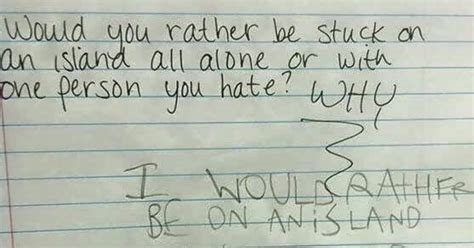 Would you rather be stuck on
an island all alone or with
one person you hate? WHY
I WOULD RATHER
BE ON AN iSLAND